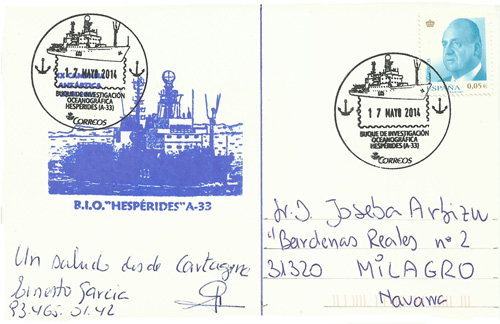 XIX CAMPAÑA
ANTÁRTICA
17 MAYO 2014
BUQUE DE INVESTIGACIÓN
OCEANOGRÁFICA
HESPÉRIDES (A-33)
CORREOS
A33
B.I.O."HESPÉRIDES"A-33
Un saludo desde Cartagena
Ernesto García
93.465.01.42
ESPAÑA 0,05€
17 MAYO 2014
BUQUE DE INVESTIGACIÓN
OCEANOGRÁFICA
HESPÉRIDES (A-33)
CORREOS
Sr. D. Joseba Arbizu
"Bardenas Reales nº 2
31320 MILAGRO
Navarra